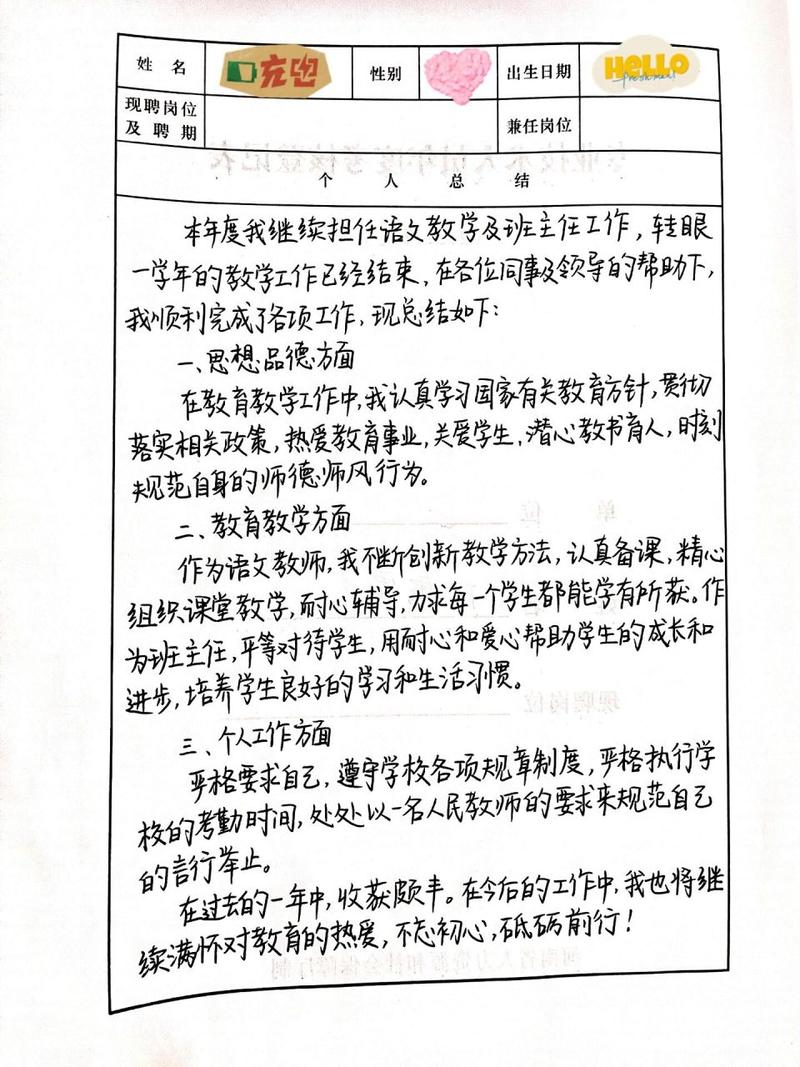 姓 名 充电 性别 出生日期 HELLO freshmeat
现聘岗位及聘期 兼任岗位
个人总结
本年度我继续担任语文教学及班主任工作，转眼
一学年的教学工作已经结束，在各位同事及领导的帮助下，
我顺利完成了各项工作，现总结如下：
一、思想品德方面
在教育教学工作中，我认真学习国家有关教育方针，贯彻
落实相关政策，热爱教育事业，关爱学生，潜心教书育人，时刻
规范自身的师德师风行为。
二、教育教学方面
作为语文教师，我不断创新教学方法，认真备课，精心
组织课堂教学，耐心辅导，力求每一个学生都能学有所获。作
为班主任，平等对待学生，用耐心和爱心帮助学生的成长和
进步，培养学生良好的学习和生活习惯。
三、个人工作方面
严格要求自己，遵守学校各项规章制度，严格执行学
校的考勤时间，处处以一名人民教师的要求来规范自己
的言行举止。
在过去的一年中，收获颇丰。在今后的工作中，我也将继
续满怀对教育的热爱，不忘初心，砥砺前行！
单 位
现聘岗位
河南省人力资源和社会保障厅制